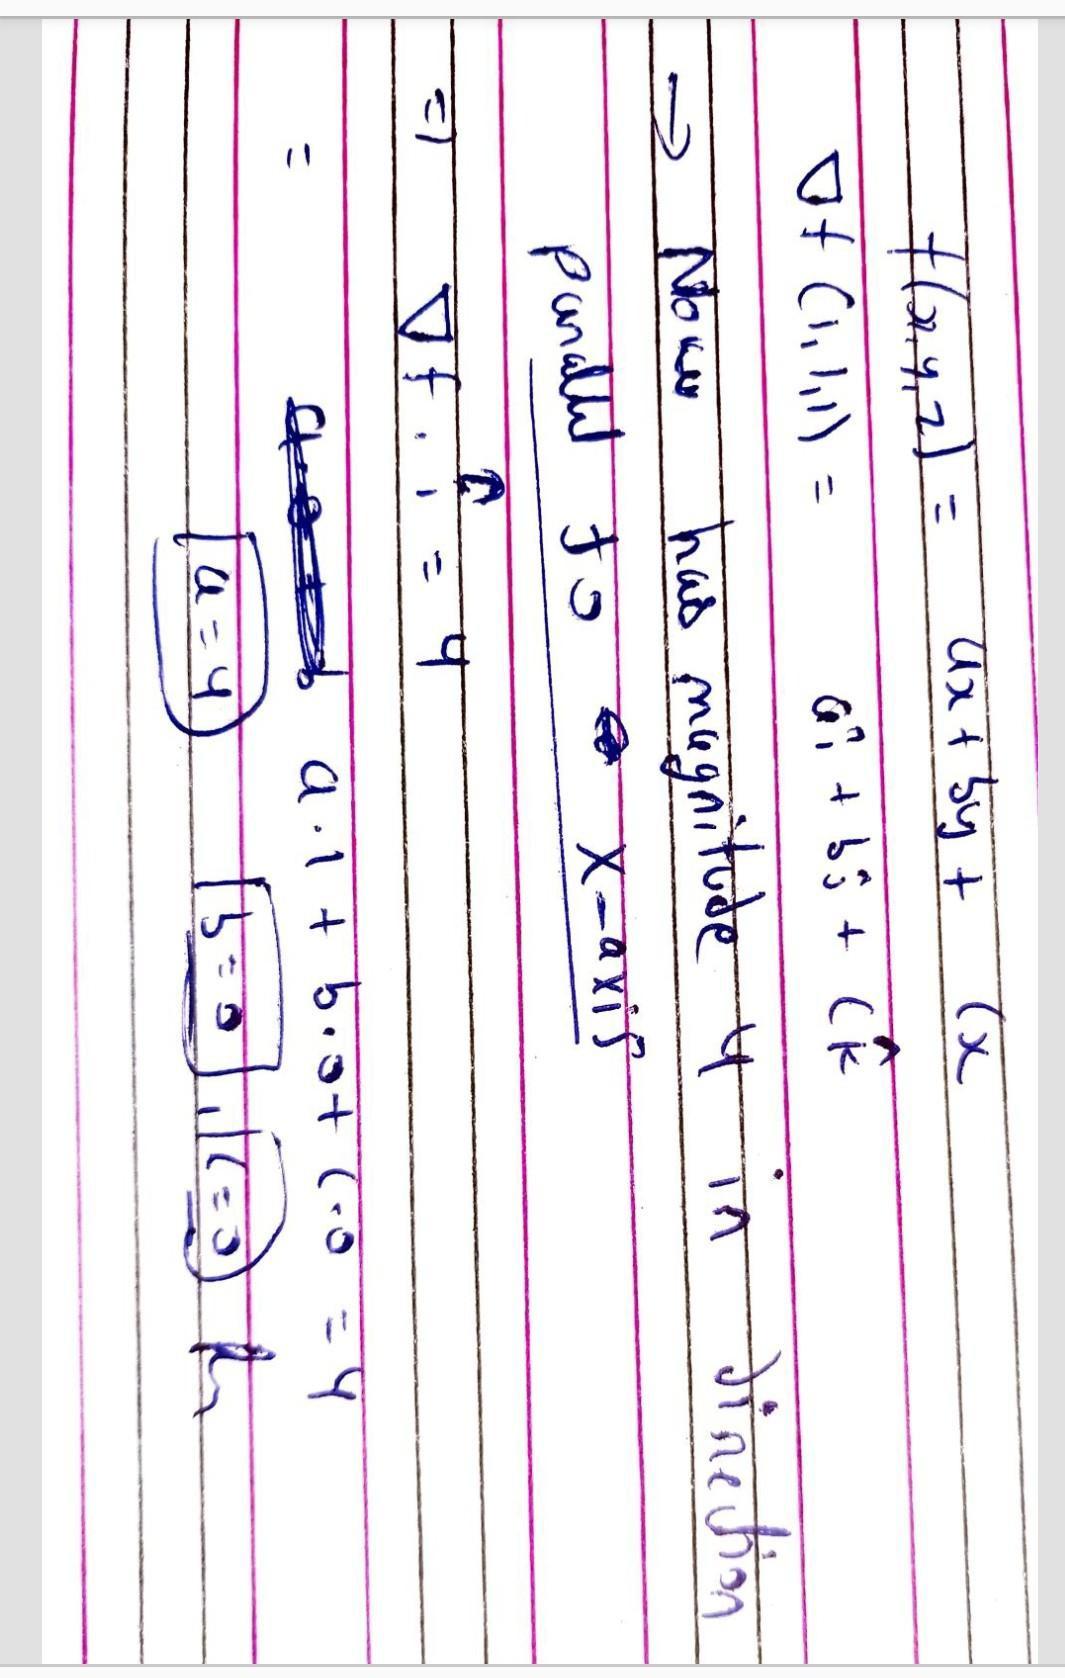 f(x,y,z) = ax + by + (x
∇f (1,1,1) = aî + bĵ + ck̂
→ Now has magnitude 4 in direction
parallel to x-axis
=) ∇f . î = 4
= a·1 + b·0 + c·0 = 4
a=4 b=0 , c=0